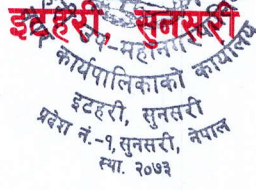 इटहरी, सुनसरी
उप-महानगरपालिका
कार्यपालिकाको कार्यालय
इटहरी, सुनसरी
प्रदेश नं.-१, सुनसरी, नेपाल
स्था. २०७३